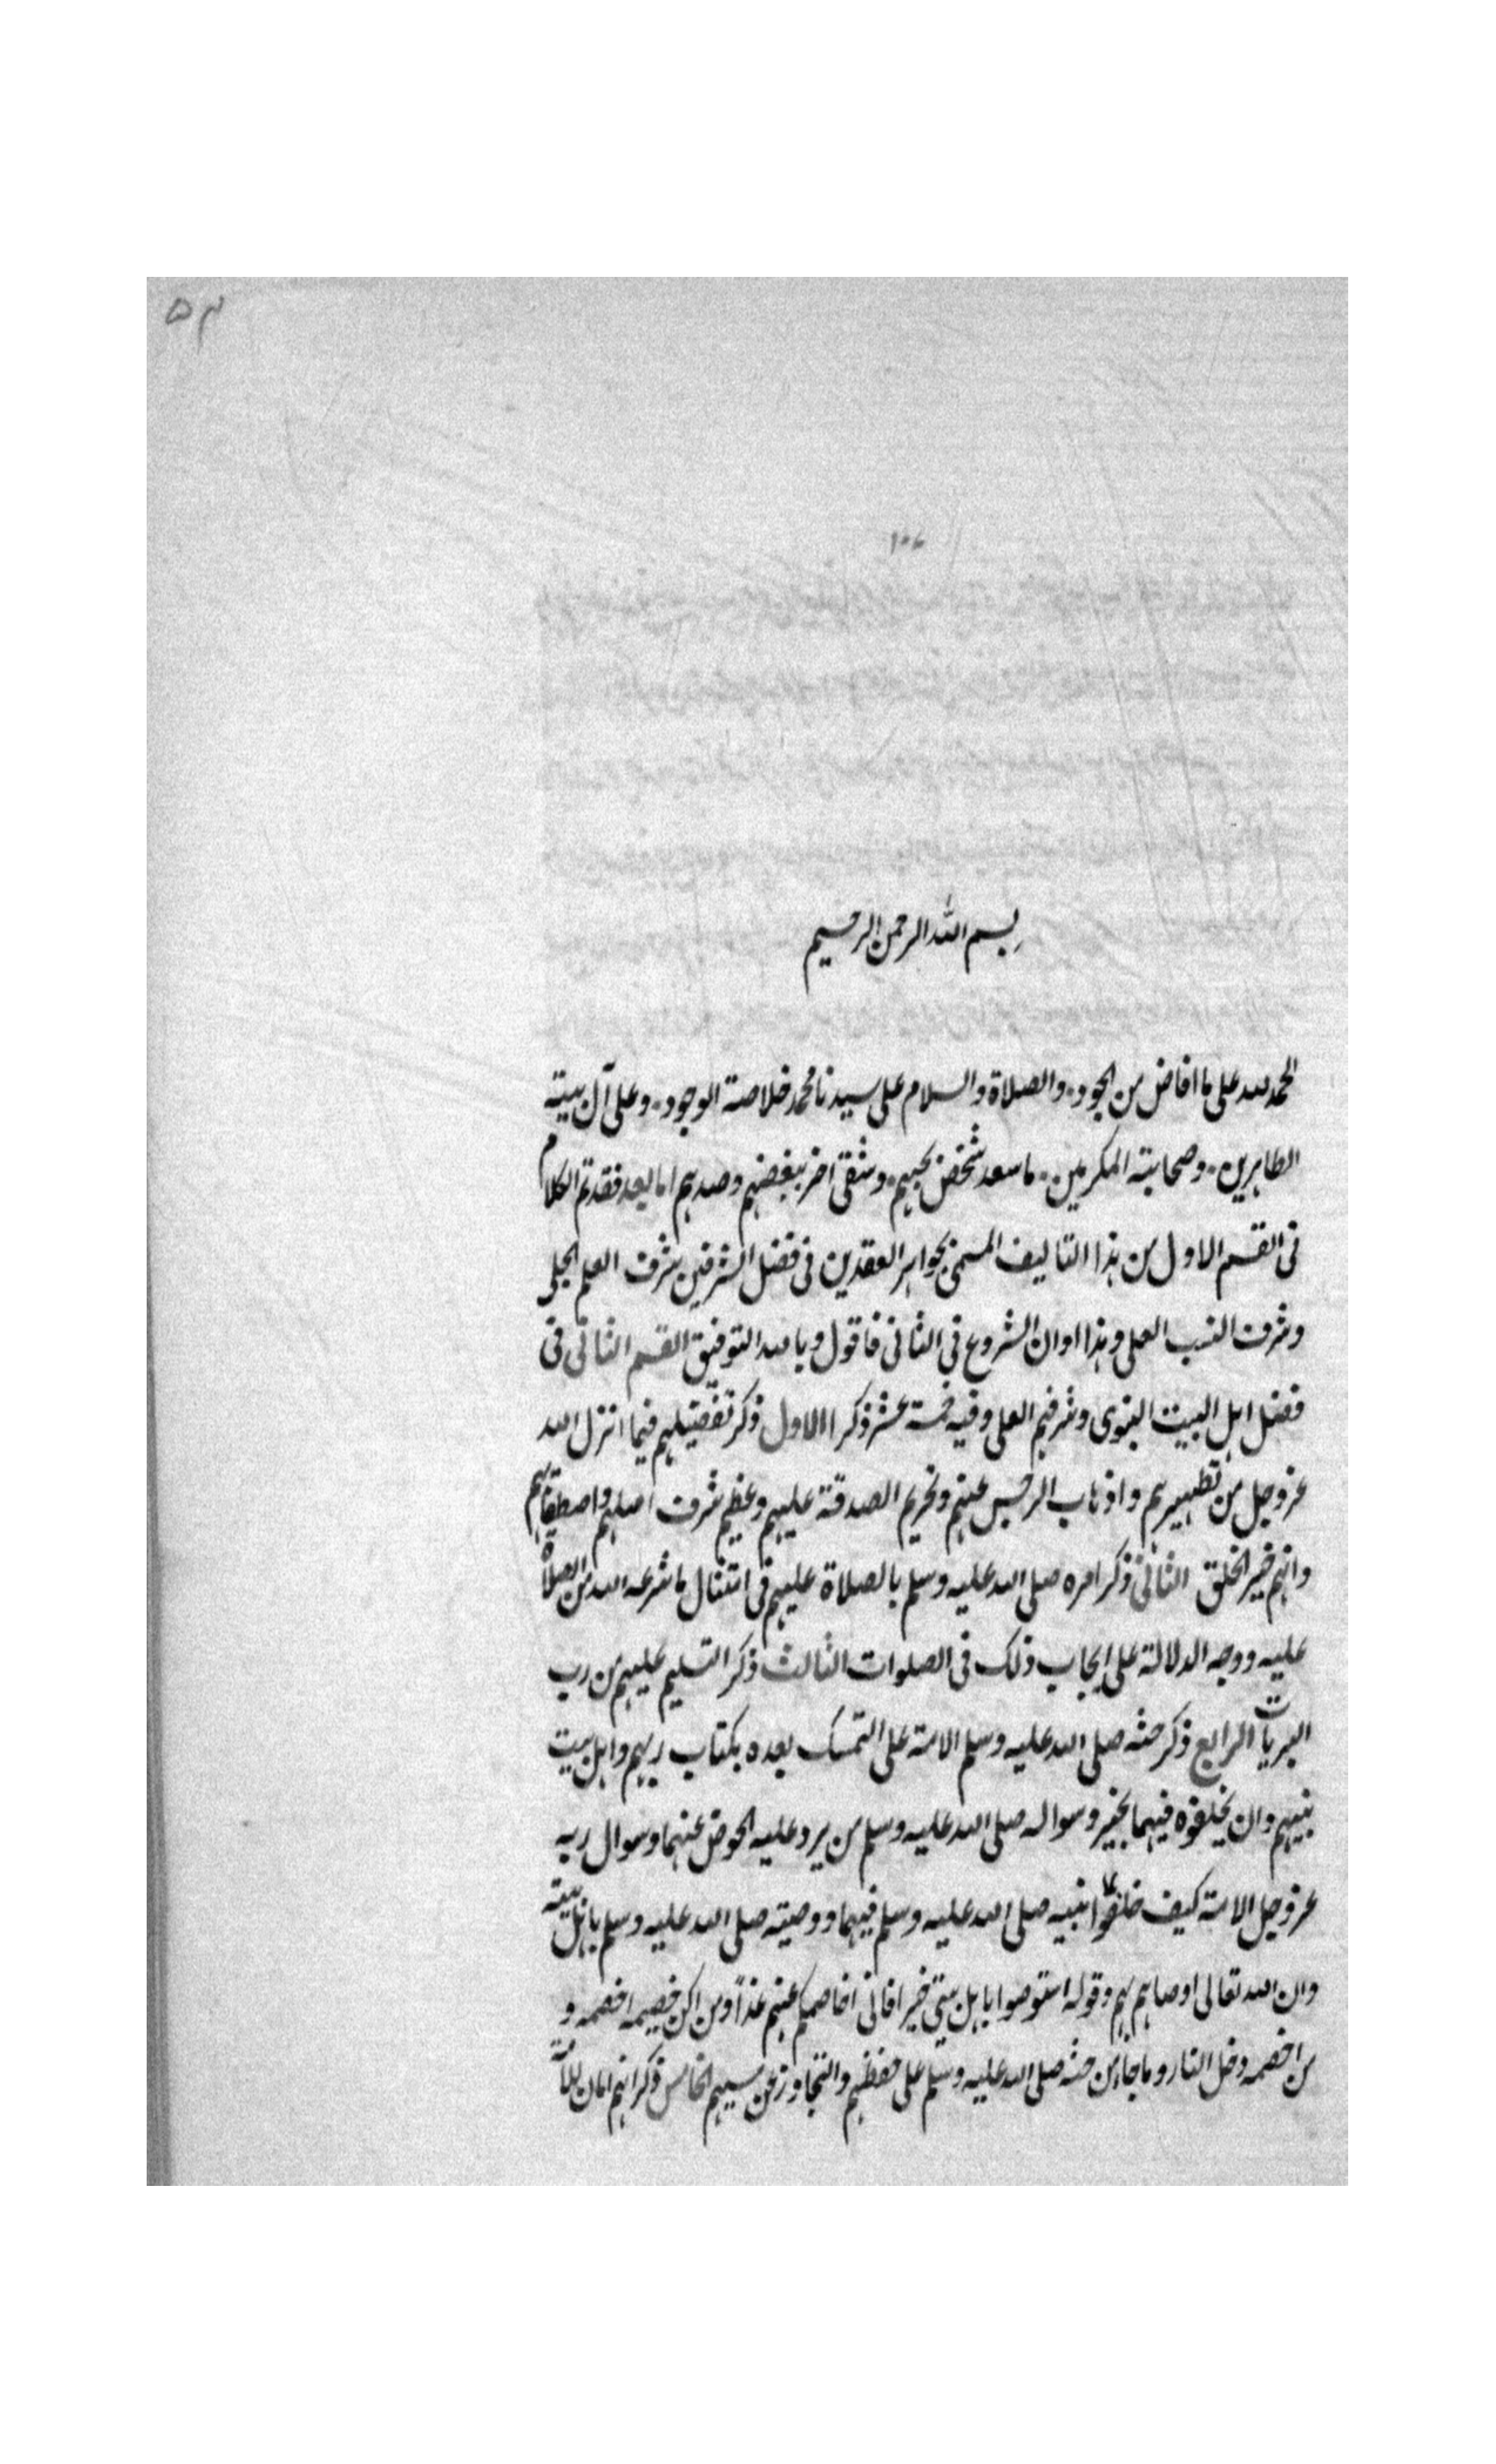 بسم الله الرحمن الرحيم
الحمد لله على ما افاض من الجود والصلاة والسلام على سيدنا محمد خلاصة الوجود وعلى آل بيته
الطاهرين وصحابته المكرمين ما سعد شخص بحبهم وشقى اخر ببغضهم وصدهم اما بعد فقد تم الكلام
فى القسم الاول من هذا التاليف المسمى بجواهر العقدين فى فضل الشرفين شرف العلم الجلى
وشرف النسب العلى وهذا اوان الشروع فى الثانى فاقول وبالله التوفيق القسم الثانى فى
فضل اهل البيت النبوى وشرفهم العلى وفيه خمسة عشر ذكرا الاول ذكر تفضيلهم فيما انزل الله
عز وجل من تطهيرهم واذهاب الرجس عنهم وتحريم الصدقة عليهم وعظيم شرف اصلهم واصطفائهم
وانهم خير الخلق الثانى ذكر امره صلى الله عليه وسلم بالصلاة عليهم فى امتثال ما شرعه الله من الصلاة
عليه ووجه الدلالة على ايجاب ذلك فى الصلوات الثالث ذكر التسليم عليهم من رب
البريات الرابع ذكر حثه صلى الله عليه وسلم الامة على التمسك بعده بكتاب ربهم واهل بيت
نبيهم وان يخلفوه فيهما بخير وسواله صلى الله عليه وسلم من يرد عليه الحوض عنهما وسوال ربه
عز وجل الامة كيف خلفوا نبيه صلى الله عليه وسلم فيهما ووصيته صلى الله عليه وسلم باهل بيته
وان الله تعالى اوصاهم بهم وقوله استوصوا باهل بيتى خيرا فانى اخاصمكم عنهم غدا ومن اكن خصيمه اخصمه و
من اخصمه دخل النار وما جاء من حثه صلى الله عليه وسلم على حفظهم والتجاوز عن مسيهم الخامس ذكر انهم امان للامة